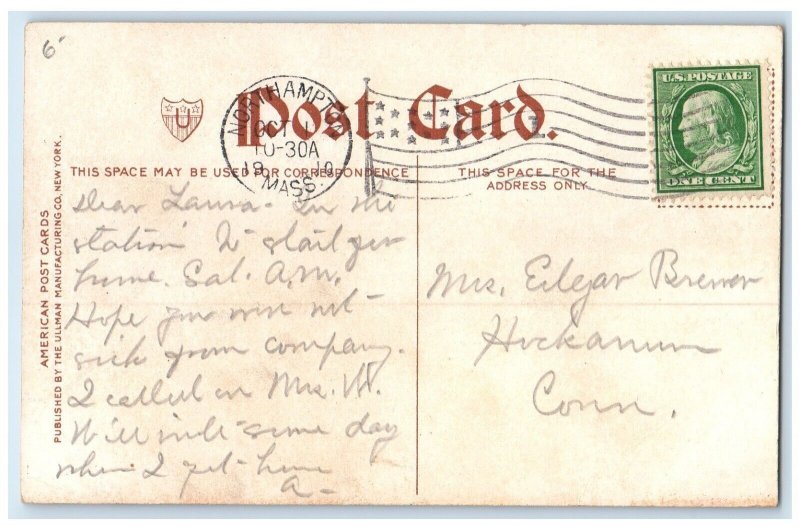 6
Post Card.
NORTHAMPTO
OCT 1
10-30A
19 10
MASS
U
U.S. POSTAGE
ONE CENT
THIS SPACE MAY BE USED FOR CORRESPONDENCE
THIS SPACE FOR THE
ADDRESS ONLY.
AMERICAN POST CARDS
PUBLISHED BY THE ULLMAN MANUFACTURING CO. NEW YORK.
Dear Laura - In the
station to start for
home. Sat. A.M.
Hope you were not
sick from company.
I called on Mrs. W.
Will write some day
when I get home
A-
Mrs. Edgar Brewer
Hockanum
Conn.